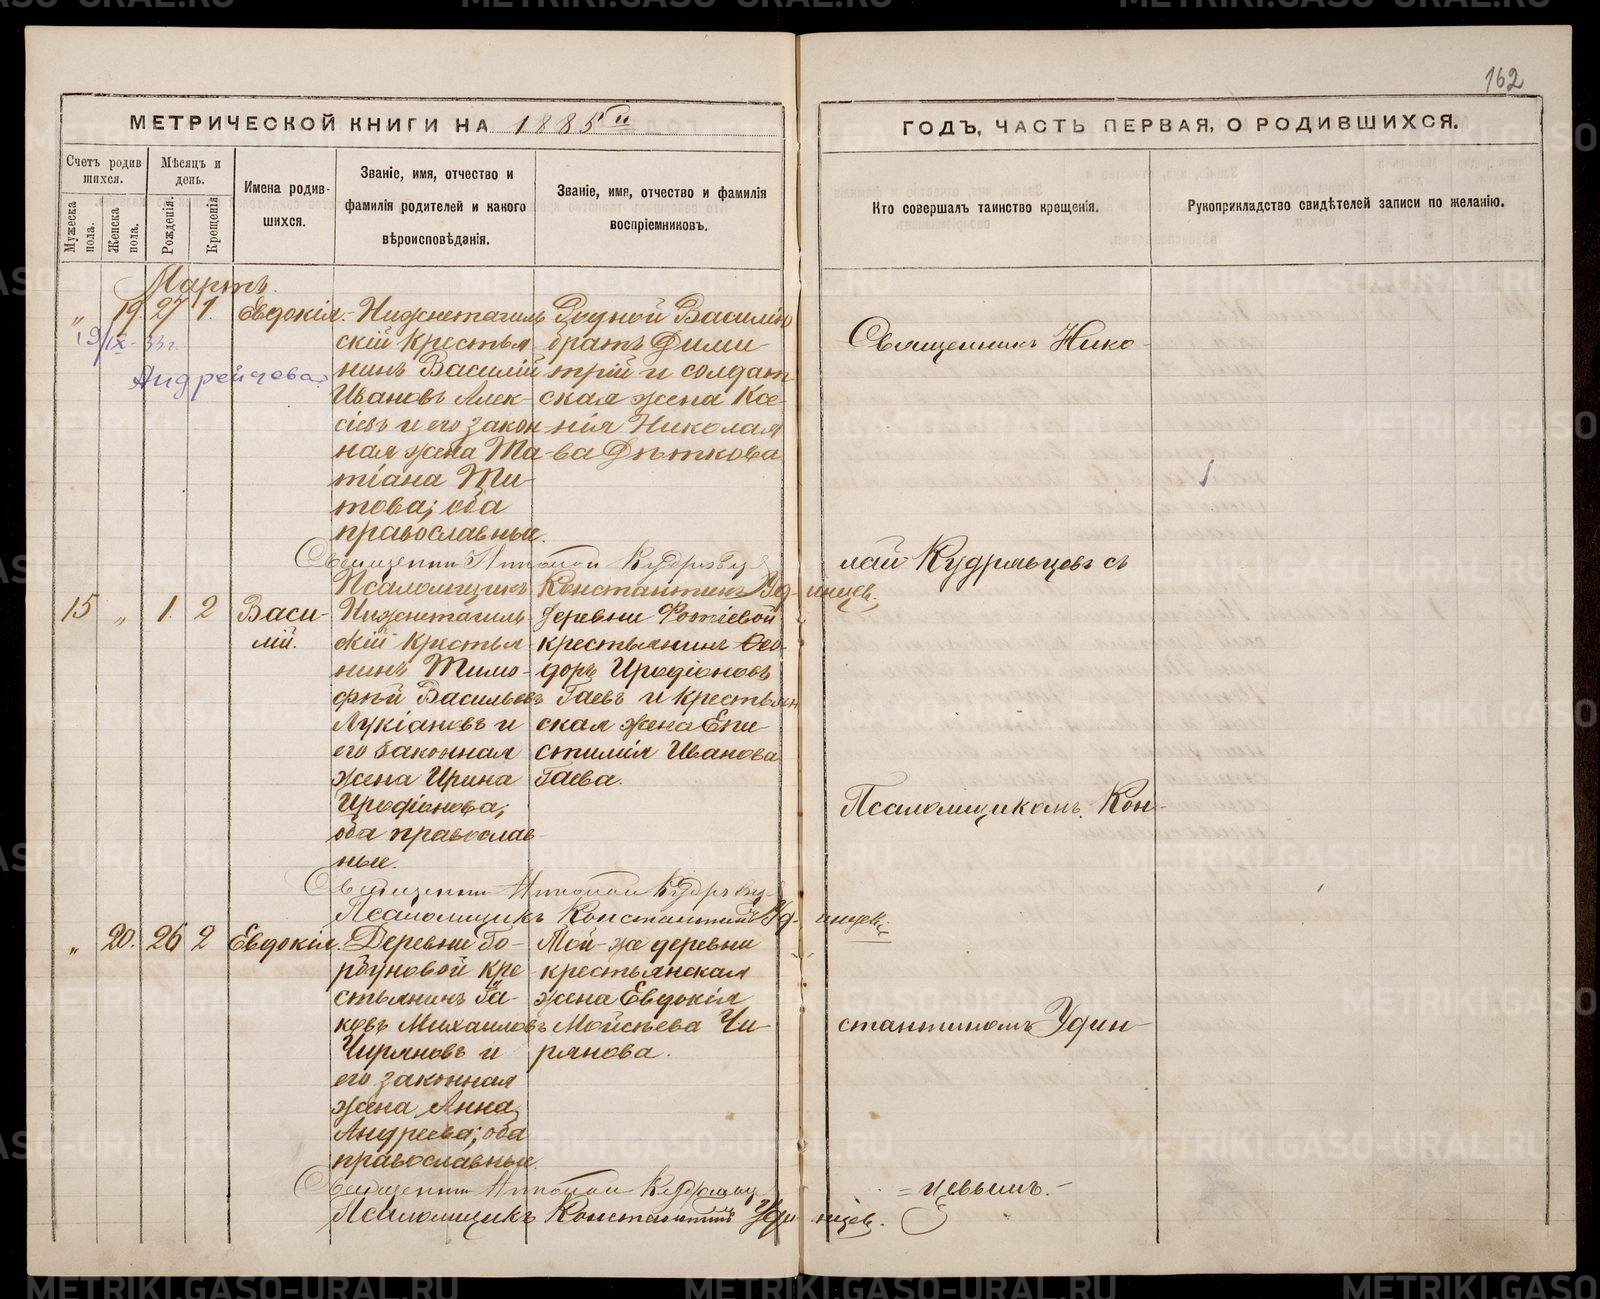 162
МЕТРИЧЕСКОЙ КНИГИ НА 1885ый
ГОДЪ, ЧАСТЬ ПЕРВАЯ, О РОДИВШИХСЯ.
Счетъ родив
шихся.
Мужеска
пола.
Женска
пола.
Мѣсяцъ и
день.
Рожденія.
Крещенія
Имена родив-
шихся.
Званіе, имя, отчество и
фамилія родителей и какого
вѣроисповѣданія.
Званіе, имя, отчество и фамилія
воспріемниковъ.
Кто совершалъ таинство крещенія.
Рукоприкладство свидѣтелей записи по желанію.
Мартъ.
„ 19 27 1. Евдокія.
19/IX-33г.
Андрейчева
Нижнетагиль
скій Крестья
нинъ Василій
Ивановъ Алек-
сіевъ и его закон
ная жена Та-
тіана Ти-
това; оба
православные.
Родной Василію
братъ Дими
трій и солдат
ская жена Ксе-
нія Николая
ва Дѣткова
Священникъ Николай Кудрявцев
Псаломщикъ Константинъ Удинцев.
15 „ 1. 2 Васи-
лій.
Нижнетагиль
скій Крестья
нинъ Тимо-
фѣй Васильевъ
Лукіановъ и
его законная
жена Ирина
Иродіонова;
оба православ-
ные.
Деревни Фотіевой
крестьянинъ Ѳео-
доръ Иродіоновъ
Гаевъ и крестьян
ская жена Епи
стимія Иванова
Гаева.
Священник Николай Кудрявцев
Псаломщикъ Константинъ Удинцев.
„ 20. 26 2 Евдокія.
Деревни Го-
рбуновой кре
стьянинъ Іа-
ковъ Михаиловъ
Чиряновъ и
его законная
жена Анна
Андреева; оба
православные.
Той-же деревни
крестьянская
жена Евдокія
Мойсѣева Чи-
рянова.
Священник Николай Кудрявцев
Псаломщикъ Константинъ Удинцев.
Священникъ Нико-
лай Кудрявцовъ съ
Псаломщикомъ Кон-
стантиномъ Удин-
=цевымъ.-